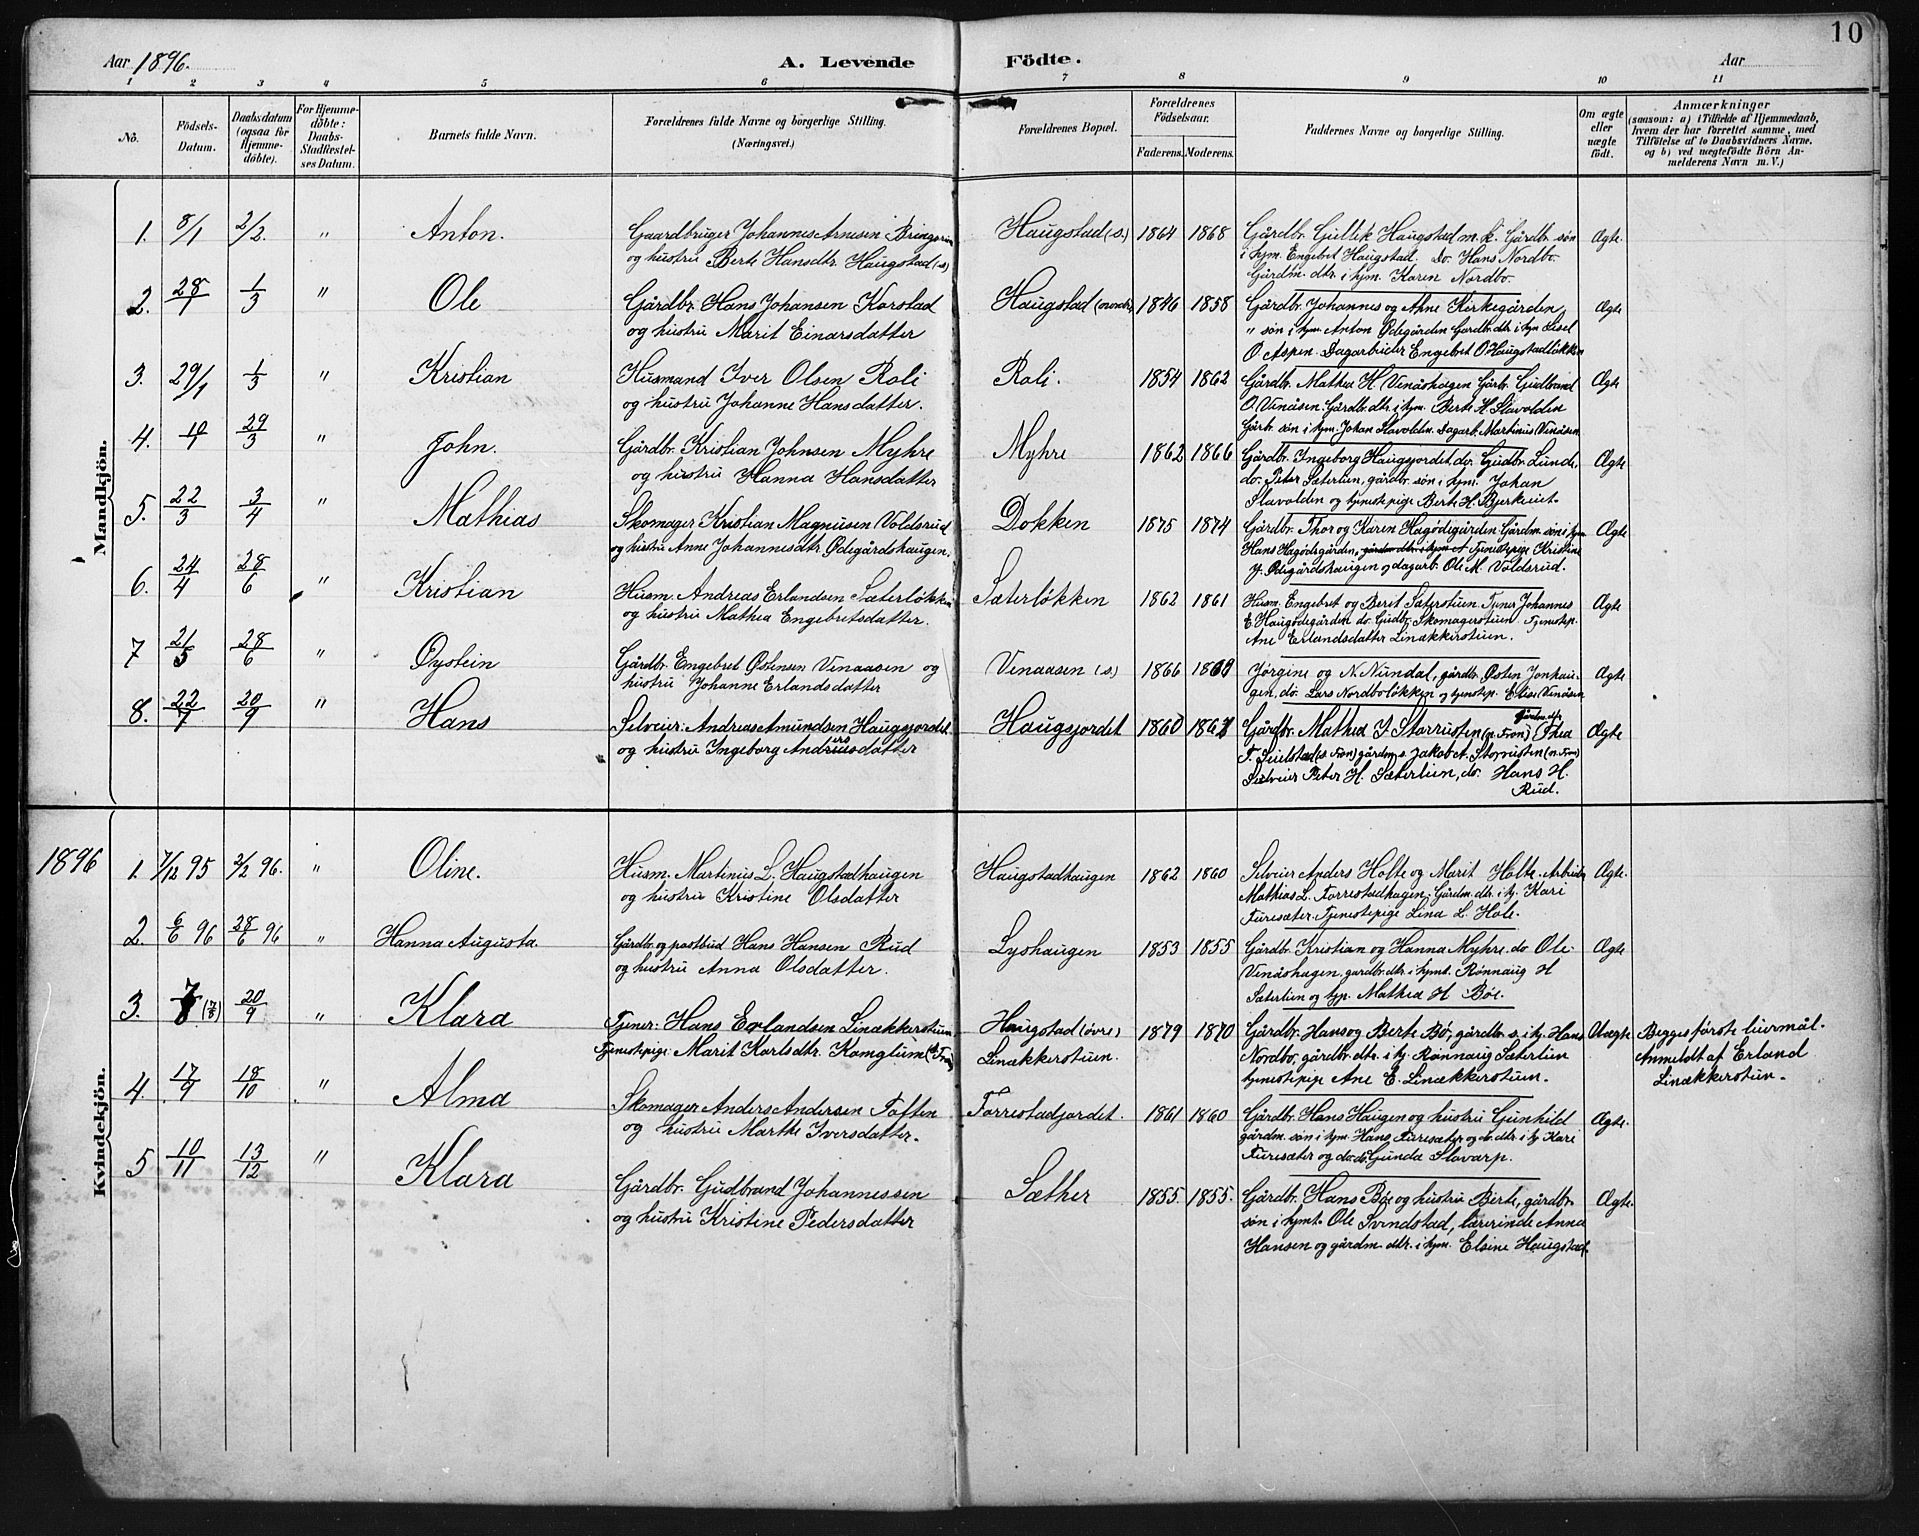 10
Aar 1896. A. Levende Födte. Aar
1 2 3 4 5 6 7 8 9 10 11
No. Födsels-Datum. Daabsdatum (ogsaa for Hjemmedöbte). For Hjemmedöbte: Daabs-Stadfæstelses Datum. Barnets fulde Navn. Forældrenes fulde Navne og borgerlige Stilling. (Næringsvei.) Forældrenes Bopæl. Forældrenes Födselsaar. Faderens. Moderens. Faddernes Navne og borgerlige Stilling. Om ægte eller uægte født. Anmærkninger (saasom: a) i Tilfælde af Hjemmedaab, hvem der har forrettet samme, med Tilföielse af to Daabsvidners Navne, og b) ved uægtefödte Börn Anmelderens Navn m. V.)
Mandkjön.
1. 8/1 2/2. " Anton. Gaardbruger Johannes Arnesen Haugstad (s.) 1864 1868 Gårdbr. Gullik Haugstad m. k. Gårdbr. søn Ægte.
og hustru Berte Hansdtr. Haugstad (s) i hjm. Engebret Haugstad. Do. Hans Nordbo.
Gårdm. dtr. i hjm. Karen Nordbo.
2. 28/1 1/3 " Ole Gårdbr. Hans Johansen Korstad Haugstad 1846 1858 Gårdbr. Johannes og Ahne Kirkegården Ægte
og hustru Marit Einarsdatter " søn i hjm Anton Ødegården Gardbr. dtr. i hjm Sisel
O. Aspen. Dagarbeider Engebret O Haugstadløkken
3. 29/1 1/3 " Kristian Husmand Iver Olsen Roli Roli. 1854 1862 Gårdbr. Mathea H. Venåshagen Gårbr. Gudbrand Ægte
og hustru Johanne Hansdatter. O. Venåsen. Gårdbr. dtr. i hjm. Berte H. Slavolden
Gårbr. søn i hjm. Johan Slavolden. Dagarb. Martinus Venåsen
4. 29/3 " John. Gårdbr. Kristian Johnsen Myhre Myhre 1862 1866 Gårdbr. Ingeborg Haugsjordet, do. Gudbr. Lunde, Ægte
og hustru Hanna Hansdatter do. Peter Sæterlien, gårdbr. søn i hjm. Johan
Slavolden og tjenestepige Berte H.
5. 22/3 3/4 " Mathias Skomager Kristian Magnusen Voldsrud Dokken 1875 1874 Gårdbr. Thor og Karen Hagødegården Gårdm. søn i hjm Ægte
og hustru Anne Johannesdtr. Ødegårdshaugen. Hans Hagødegården, gårdm dtr. i hjm Tjenestepige Kristine
J. Ødegårdshaugen og dagarb. Ole M. Voldsrud.
6. 24/4 28/6 " Kristian Husm. Andreas Erlandsen Sæterløkken Sæterløkken 1862 1861 Husm. Engebret og Berit Sæterstuen Tjener Johannes Ægte
og hustru Mathea Engebretsdatter. E. Haugødegården do. Gudbr. Skomagerstuen Tjenestep.
Ane Erlandsdatter Linækkerstuen.
7 21/5 28/6 " Øystein Gårdbr. Engebret Østensen Venaasen og Venaasen (s.) 1866 Jørgine og N. Nundal, gårdbr. Østen Jonhaugen, Ægte
hustru Johanne Erlandsdatter do. Lars Nordboløkken og tjenestep. Elise Venåsen
8. 22/7 20/9 " Hans Selveier. Andreas Amundsen Haugsjordet Haugsjordet 1860 Gårdbr. Mathea J. Storrusten (n. Fron) Gårdm. dtr. Thea Ægte
og hustru Ingeborg Andersdatter (s. Fron) gårdm. s. Jakob A. Storrusten (n. Fron)
Selveier Peter H. Sæterlien, do. Hans H.
Rud.
1896
Kvindekjön.
1. 7/12 95 2/2 96. " Oline. Husm. Martinus L. Haugstadhaugen Haugstadhaugen 1862 1860 Selveier Anders Holte og Marit Holte. Arbeider Ægte.
og hustru Kristine Olsdatter Mathias L. Forrestadhagen, Gårdm. dtr. i hj. Kari
Furesæter. Tjenestepige Lina L. Hole.
2. 6/6 96 28/6 96 " Hanna Augusta Gårdbr. og postbud Hans Hansen Rud Lyshaugen 1853 1855 Gårdbr. Kristian og Hanna Myhre. do. Ole Ægte
og hustru Anna Olsdatter. Venåshagen. gardbr. dtr. i hjmt. Rønnaug H
Sæterlien og tjp. Mathea H Bøe.
3. 7/8 (7/8) 20/9 " Klara Tjener: Hans Erlandsen Linækkerstuen Haugstad (øvre) 1879 1870 Gårdbr. Hans og Berte Bø, gårdbr. s. i hj. Hans Uægte Begges første leiermål.
Tjenestepige: Marit Karlsdtr. Komglum Linækkerstuen. Nordbo, gårdbr. dtr. i hj. Rønnaug Sæterlien Anmeldt af Erland
tjenestepige Ane E. Linækkerstuen. Linækkerstuen.
4. 17/9 18/10 " Alma Skomager Anders Andersen Toften Forrestadjordet. 1861 1860 Gårdbr. Hans Haugen og hustru Gunhild Ægte.
og hustru Marthe Iversdatter. gårdm. søn i hjm. Hans Furresæter og do. dtr. i hj Kari
Furesæter og do. do. Gunda Slavarp.
5 10/11 13/12 " Klara Gårdbr. Gudbrand Johannessen Sæther 1855. 1855. Gårdbr. Hans Bøe og hustru Berte, gårdbr. Ægte.
og hustru Kristine Pedersdatter søn i hjmt. Ole Svindstad, lærerinde Anna
Hansen og gårdm. dtr. i hjm. Elsine Haugstad.